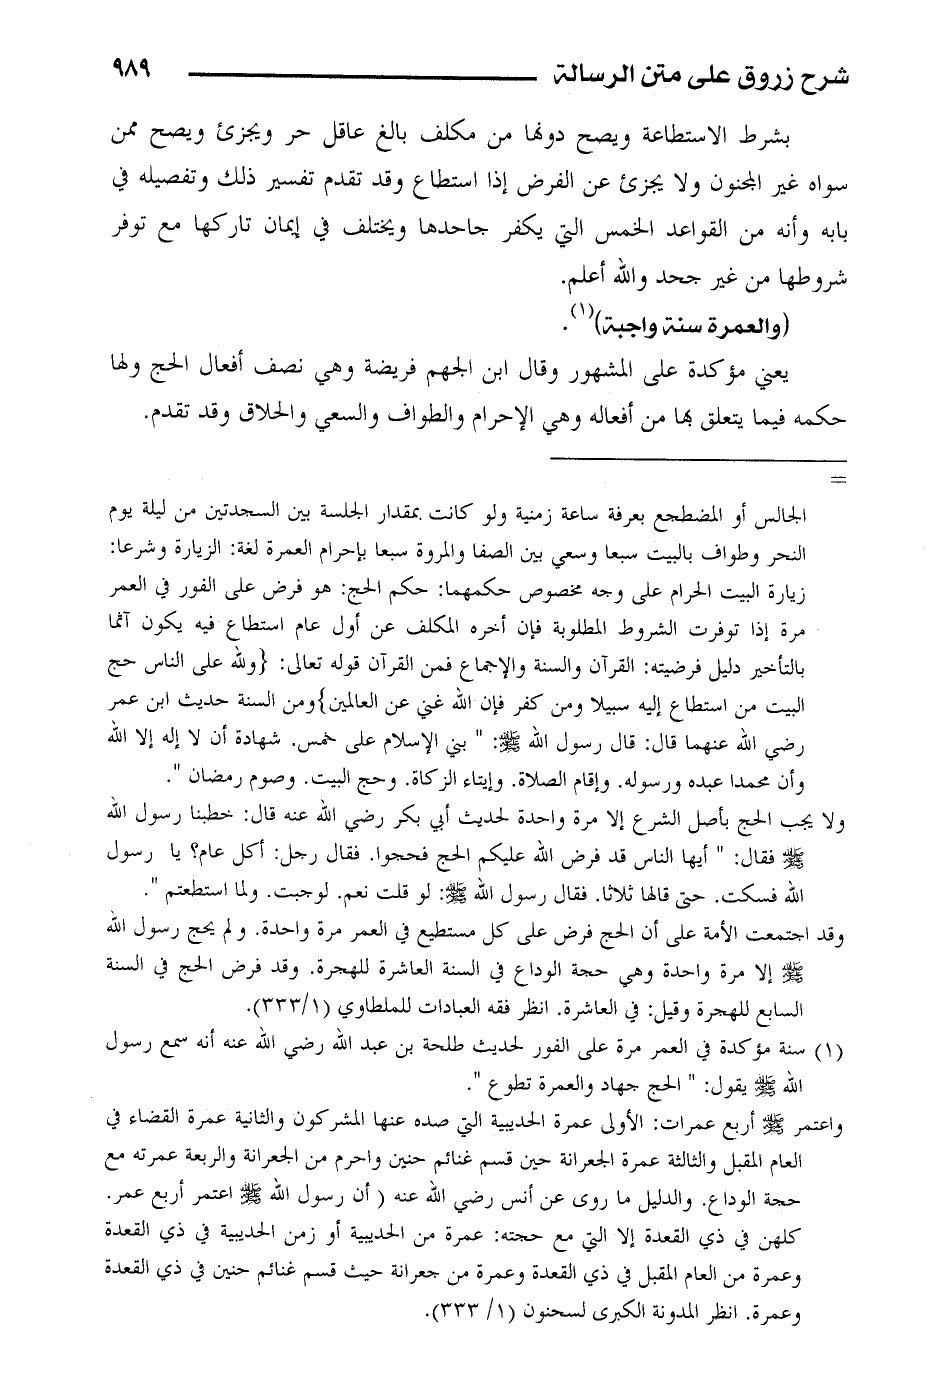 شرح زروق على متن الرسالة ٩٨٩
بشرط الاستطاعة ويصح دونها من مكلف بالغ عاقل حر ويجزئ ويصح ممن
سواه غير المجنون ولا يجزئ عن الفرض إذا استطاع وقد تقدم تفسير ذلك وتفصيله في
بابه وأنه من القواعد الخمس التي يكفر جاحدها ويختلف في إيمان تاركها مع توفر
شروطها من غير جحد والله أعلم.
(والعمرة سنة واجبة)(١).
يعني مؤكدة على المشهور وقال ابن الجهم فريضة وهي نصف أفعال الحج ولها
حكمه فيما يتعلق بها من أفعاله وهي الإحرام والطواف والسعي والحلاق وقد تقدم.
=
الجالس أو المضطجع بعرفة ساعة زمنية ولو كانت بمقدار الجلسة بين السجدتين من ليلة يوم
النحر وطواف بالبيت سبعا وسعي بين الصفا والمروة سبعا بإحرام العمرة لغة: الزيارة وشرعا:
زيارة البيت الحرام على وجه مخصوص حكمهما: حكم الحج: هو فرض على الفور في العمر
مرة إذا توفرت الشروط المطلوبة فإن أخره المكلف عن أول عام استطاع فيه يكون آثما
بالتأخير دليل فرضيته: القرآن والسنة والإجماع فمن القرآن قوله تعالى: {ولله على الناس حج
البيت من استطاع إليه سبيلا ومن كفر فإن الله غني عن العالمين}ومن السنة حديث ابن عمر
رضي الله عنهما قال: قال رسول الله ﷺ: " بني الإسلام على خمس. شهادة أن لا إله إلا الله
وأن محمدا عبده ورسوله. وإقام الصلاة. وإيتاء الزكاة. وحج البيت. وصوم رمضان ".
ولا يجب الحج بأصل الشرع إلا مرة واحدة لحديث أبي بكر رضي الله عنه قال: خطبنا رسول الله
ﷺ فقال: " أيها الناس قد فرض الله عليكم الحج فحجوا. فقال رجل: أكل عام؟ يا رسول
الله فسكت. حتى قالها ثلاثا. فقال رسول الله ﷺ: لو قلت نعم. لوجبت. ولما استطعتم ".
وقد اجتمعت الأمة على أن الحج فرض على كل مستطيع في العمر مرة واحدة. ولم يحج رسول الله
ﷺ إلا مرة واحدة وهي حجة الوداع في السنة العاشرة للهجرة. وقد فرض الحج في السنة
السابع للهجرة وقيل: في العاشرة. انظر فقه العبادات للملطاوي (١/٣٣٣).
(١) سنة مؤكدة في العمر مرة على الفور لحديث طلحة بن عبد الله رضي الله عنه أنه سمع رسول
الله ﷺ يقول: " الحج جهاد والعمرة تطوع ".
واعتمر ﷺ أربع عمرات: الأولى عمرة الحديبية التي صده عنها المشركون والثانية عمرة القضاء في
العام المقبل والثالثة عمرة الجعرانة حين قسم غنائم حنين واحرم من الجعرانة والربعة عمرته مع
حجة الوداع. والدليل ما روى عن أنس رضي الله عنه ( أن رسول الله ﷺ اعتمر أربع عمر.
كلهن في ذي القعدة إلا التي مع حجته: عمرة من الحديبية أو زمن الحديبية في ذي القعدة
وعمرة من العام المقبل في ذي القعدة وعمرة من جعرانة حيث قسم غنائم حنين في ذي القعدة
وعمرة. انظر المدونة الكبرى لسحنون (١/ ٣٣٣).